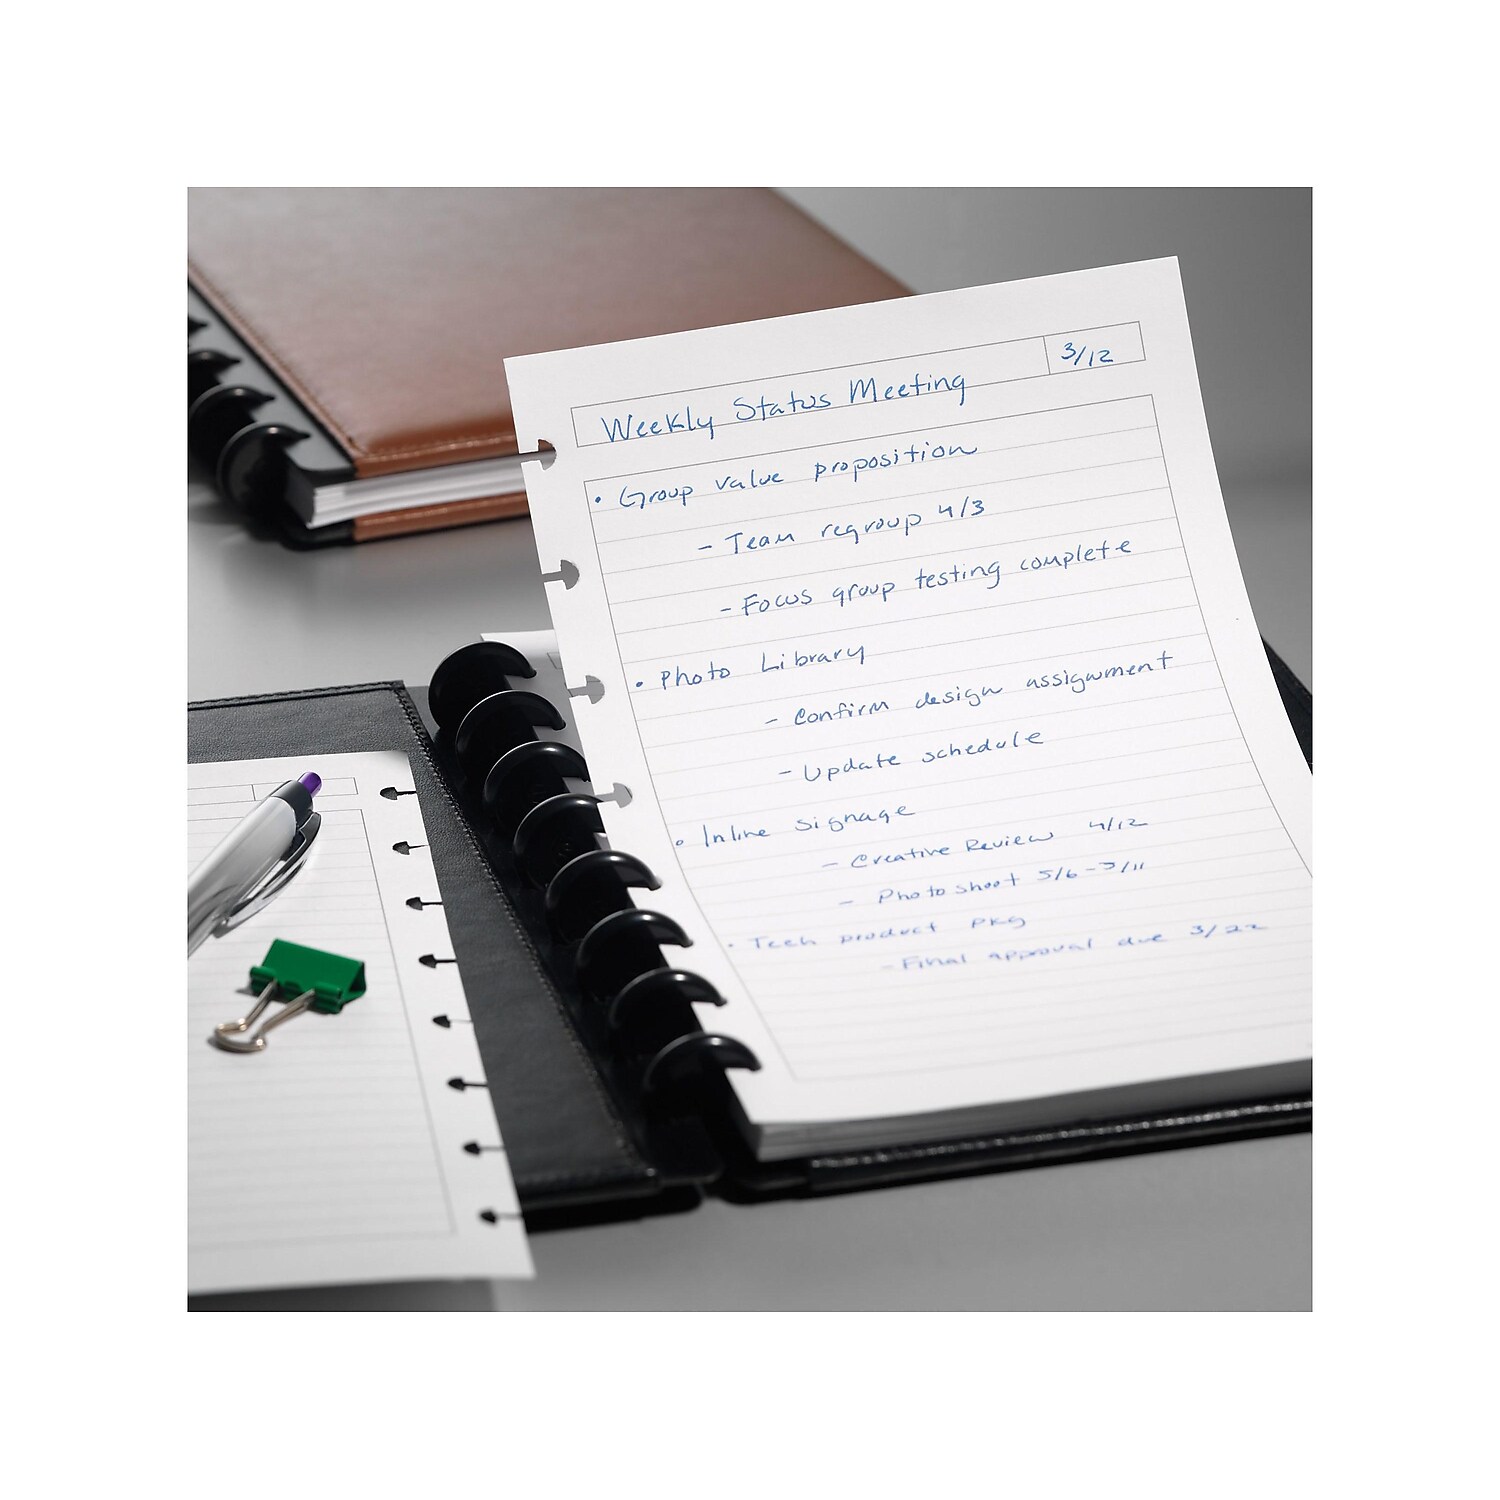 Weekly Status Meeting 3/12
• Group value proposition
- Team regroup 4/3
- Focus group testing complete
• Photo Library
- Confirm design assignment
- Update schedule
• Inline Signage
- Creative Review 4/12
- Photo shoot 5/6 - 5/11
• Tech product PKG
- Final approval due 3/22